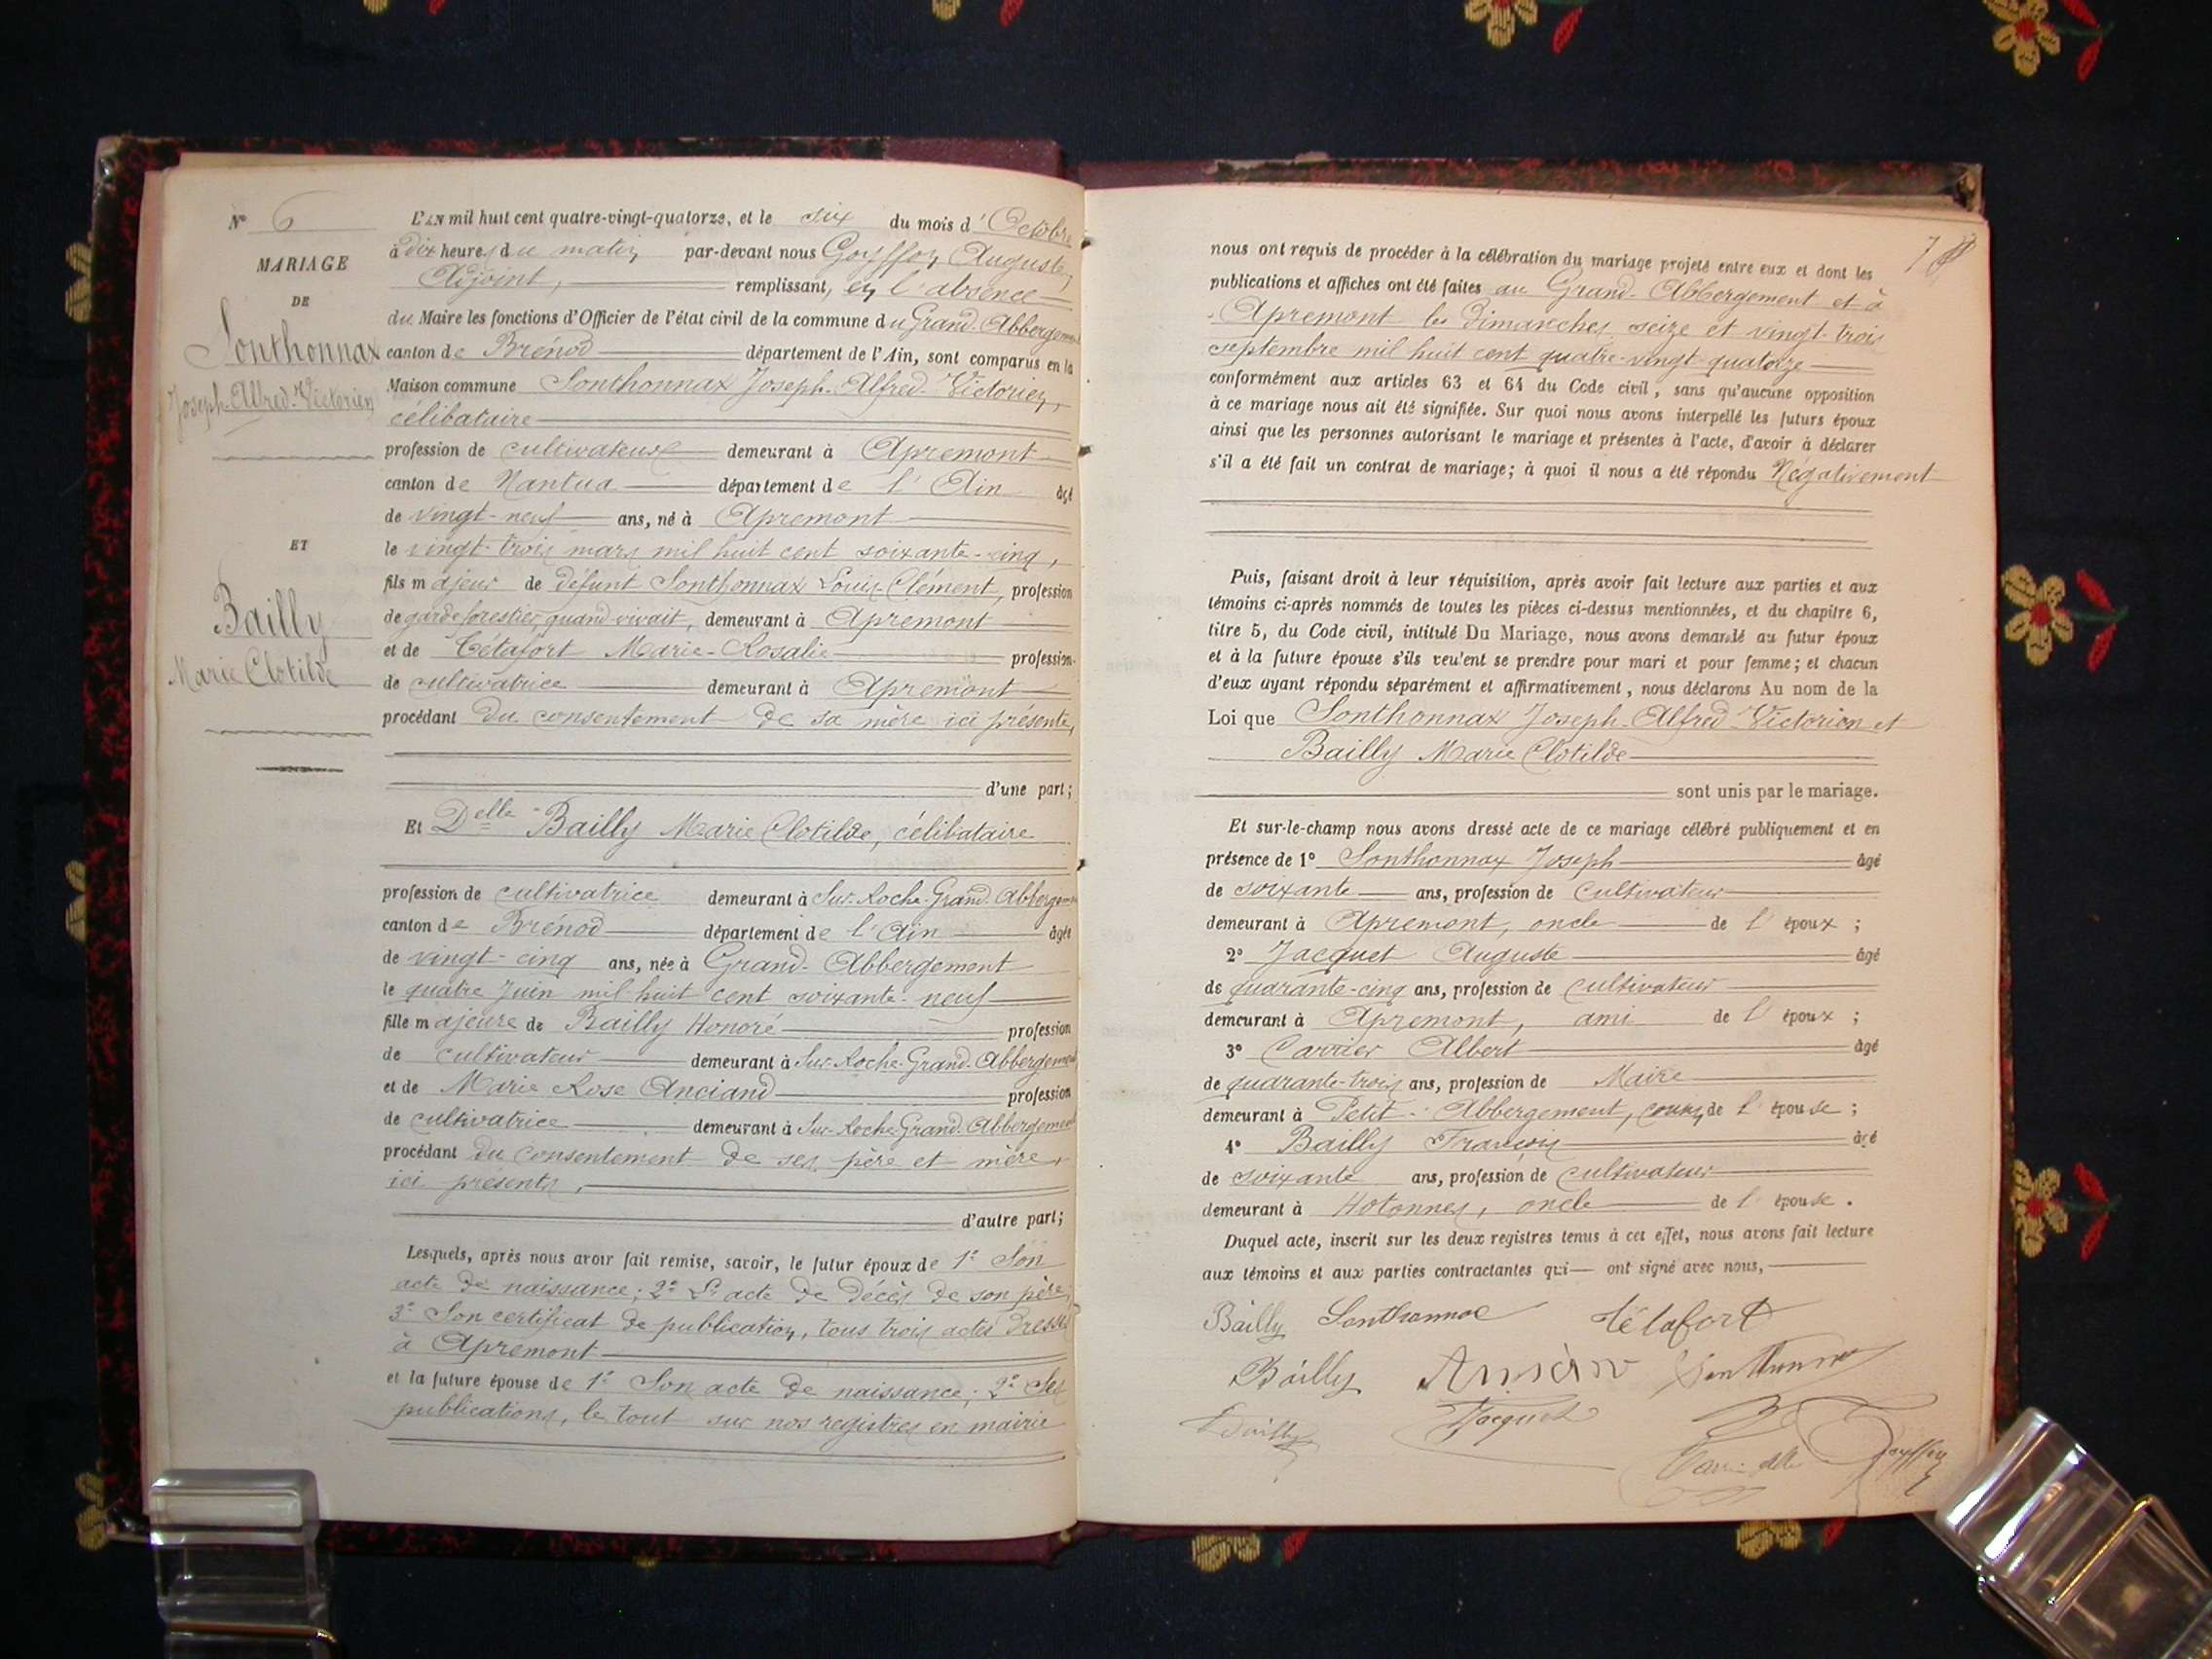 N° 6
MARIAGE
DE
Sonthonnax
Joseph-Alfred-Victorien
ET
Bailly
Marie Clotilde
L'AN mil huit cent quatre-vingt-quatorze, et le six du mois d'Octobre
à dix heures du matin par-devant nous Goyffon Auguste,
Adjoint, remplissant, en l'absence
du Maire les fonctions d'Officier de l'état civil de la commune du Grand-Abbergement
canton de Brénod département de l'Ain, sont comparus en la
Maison commune Sonthonnax Joseph-Alfred-Victorien,
célibataire
profession de cultivateur demeurant à Apremont
canton de Nantua département de l'Ain âgé
de vingt-neuf ans, né à Apremont
le vingt-trois mars mil huit cent soixante-cinq,
fils majeur de défunt Sonthonnax Louis-Clément, profession
de garde forestier, quand vivait, demeurant à Apremont
et de Tétafort Marie-Rosalie profession
de cultivatrice demeurant à Apremont
procédant du consentement de sa mère ici présente,
d'une part;
Et Delle Bailly Marie Clotilde, célibataire
profession de cultivatrice demeurant à Sur-Roche-Grand-Abbergement
canton de Brénod département de l'Ain âgée
de vingt-cinq ans, née à Grand-Abbergement
le quatre Juin mil huit cent soixante-neuf
fille majeure de Bailly Honoré profession
de cultivateur demeurant à Sur-Roche-Grand-Abbergement
et de Marie Rose Anciand profession
de cultivatrice demeurant à Sur-Roche-Grand-Abbergement
procédant du consentement de ses père et mère,
ici présents,
d'autre part;
Lesquels, après nous avoir fait remise, savoir, le futur époux de 1° Son
acte de naissance; 2° L'acte de décès de son père;
3° Son certificat de publication, tous trois actes dressés
à Apremont
et la future épouse de 1° Son acte de naissance; 2° Ses
publications, le tout sur nos registres en mairie
7
nous ont requis de procéder à la célébration du mariage projeté entre eux et dont les
publications et affiches ont été faites au Grand-Abbergement et à
Apremont les dimanches seize et vingt-trois
septembre mil huit cent quatre-vingt-quatorze
conformément aux articles 63 et 64 du Code civil, sans qu'aucune opposition
à ce mariage nous ait été signifiée. Sur quoi nous avons interpellé les futurs époux
ainsi que les personnes autorisant le mariage et présentes à l'acte, d'avoir à déclarer
s'il a été fait un contrat de mariage; à quoi il nous a été répondu Négativement
Puis, faisant droit à leur réquisition, après avoir fait lecture aux parties et aux
témoins ci-après nommés de toutes les pièces ci-dessus mentionnées, et du chapitre 6,
titre 5, du Code civil, intitulé Du Mariage, nous avons demandé au futur époux
et à la future épouse s'ils veulent se prendre pour mari et pour femme; et chacun
d'eux ayant répondu séparément et affirmativement, nous déclarons Au nom de la
Loi que Sonthonnax Joseph-Alfred-Victorien et
Bailly Marie Clotilde
sont unis par le mariage.
Et sur-le-champ nous avons dressé acte de ce mariage célébré publiquement et en
présence de 1° Sonthonnax Joseph âgé
de soixante ans, profession de cultivateur
demeurant à Apremont, oncle de l'époux;
2° Jacquet Auguste âgé
de quarante-cinq ans, profession de cultivateur
demeurant à Apremont, ami de l'époux;
3° Carrier Albert âgé
de quarante-trois ans, profession de Maire
demeurant à Petit-Abbergement, cousin de l'épouse;
4° Bailly François âgé
de soixante ans, profession de cultivateur
demeurant à Hotonnes, oncle de l'épouse.
Duquel acte, inscrit sur les deux registres tenus à cet effet, nous avons fait lecture
aux témoins et aux parties contractantes qui ont signé avec nous,
Bailly Sonthonnax Tétafort
Bailly Sonthonnax
Bailly Jacquet
Goyffon